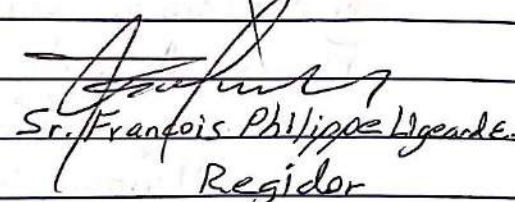 Sr. François Philippe Ligeard E.
Regidor